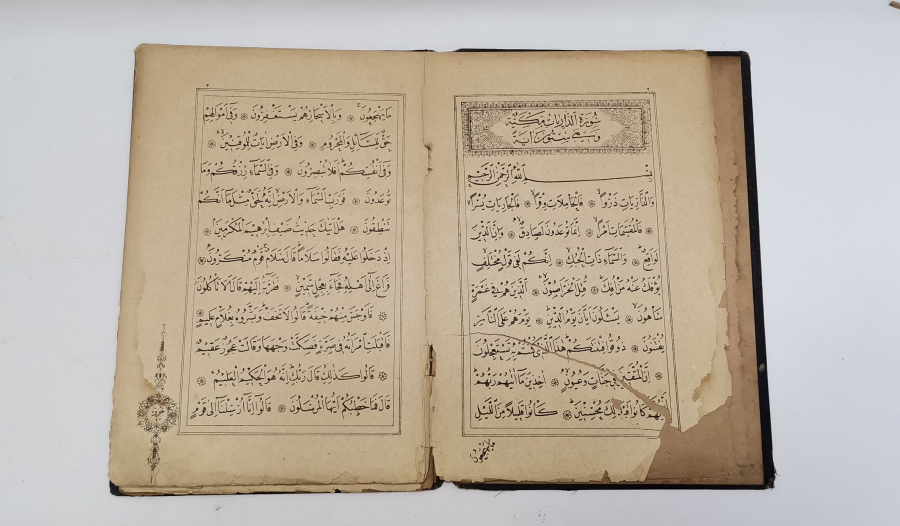 سُورَةُ الذَّارِيَاتِ مَكِّيَّةٌ
وَهِيَ سِتُّونَ اٰيَةً
بِسْمِ اللّٰهِ الرَّحْمٰنِ الرَّحِيمِ
وَالذَّارِيَاتِ ذَرْوًا ۞ فَالْحَامِلَاتِ وِقْرًا ۞ فَالْجَارِيَاتِ يُسْرًا
۞ فَالْمُقَسِّمَاتِ اَمْرًا ۞ اِنَّمَا تُوعَدُونَ لَصَادِقٌ ۞ وَاِنَّ الدِّينَ
لَوَاقِعٌ ۞ وَالسَّمَاءِ ذَاتِ الْحُبُكِ ۞ اِنَّكُمْ لَفِي قَوْلٍ مُخْتَلِفٍ
يُؤْفَكُ عَنْهُ مَنْ اُفِكَ ۞ قُتِلَ الْخَرَّاصُونَ ۞ اَلَّذِينَ هُمْ فِي غَمْرَةٍ
سَاهُونَ ۞ يَسْئَلُونَ اَيَّانَ يَوْمُ الدِّينِ ۞ يَوْمَ هُمْ عَلَى النَّارِ
يُفْتَنُونَ ۞ ذُوقُوا فِتْنَتَكُمْ هٰذَا الَّذِي كُنْتُمْ بِهِ تَسْتَعْجِلُونَ
۞ اِنَّ الْمُتَّقِينَ فِي جَنَّاتٍ وَعُيُونٍ ۞ اٰخِذِينَ مَا اٰتٰيهُمْ رَبُّهُمْ
اِنَّهُمْ كَانُوا قَبْلَ ذٰلِكَ مُحْسِنِينَ ۞ كَانُوا قَلِيلًا مِنَ اللَّيْلِ
مَا يَهْجَعُونَ
مَا يَهْجَعُونَ ۞ وَبِالْاَسْحَارِ هُمْ يَسْتَغْفِرُونَ ۞ وَفِي اَمْوَالِهِمْ
حَقٌّ لِلسَّائِلِ وَالْمَحْرُومِ ۞ وَفِي الْاَرْضِ اٰيَاتٌ لِلْمُوقِنِينَ ۞
وَفِي اَنْفُسِكُمْ اَفَلَا تُبْصِرُونَ ۞ وَفِي السَّمَاءِ رِزْقُكُمْ وَمَا
تُوعَدُونَ ۞ فَوَرَبِّ السَّمَاءِ وَالْاَرْضِ اِنَّهُ لَحَقٌّ مِثْلَ مَا اَنَّكُمْ
تَنْطِقُونَ ۞ هَلْ اَتٰيكَ حَدِيثُ ضَيْفِ اِبْرٰهِيمَ الْمُكْرَمِينَ ۞
اِذْ دَخَلُوا عَلَيْهِ فَقَالُوا سَلَامًا قَالَ سَلَامٌ قَوْمٌ مُنْكَرُونَ ۞
فَرَاغَ اِلٰى اَهْلِهِ فَجَاءَ بِعِجْلٍ سَمِينٍ ۞ فَقَرَّبَهُ اِلَيْهِمْ قَالَ اَلَا تَأْكُلُونَ
۞ فَاَوْجَسَ مِنْهُمْ خِيفَةً قَالُوا لَا تَخَفْ وَبَشَّرُوهُ بِغُلَامٍ عَلِيمٍ ۞
فَاَقْبَلَتِ امْرَاَتُهُ فِي صَرَّةٍ فَصَكَّتْ وَجْهَهَا وَقَالَتْ عَجُوزٌ عَقِيمٌ
۞ قَالُوا كَذٰلِكِ قَالَ رَبُّكِ اِنَّهُ هُوَ الْحَكِيمُ الْعَلِيمُ ۞
قَالَ فَمَا خَطْبُكُمْ اَيُّهَا الْمُرْسَلُونَ ۞ قَالُوا اِنَّا اُرْسِلْنَا اِلٰى قَوْمٍ